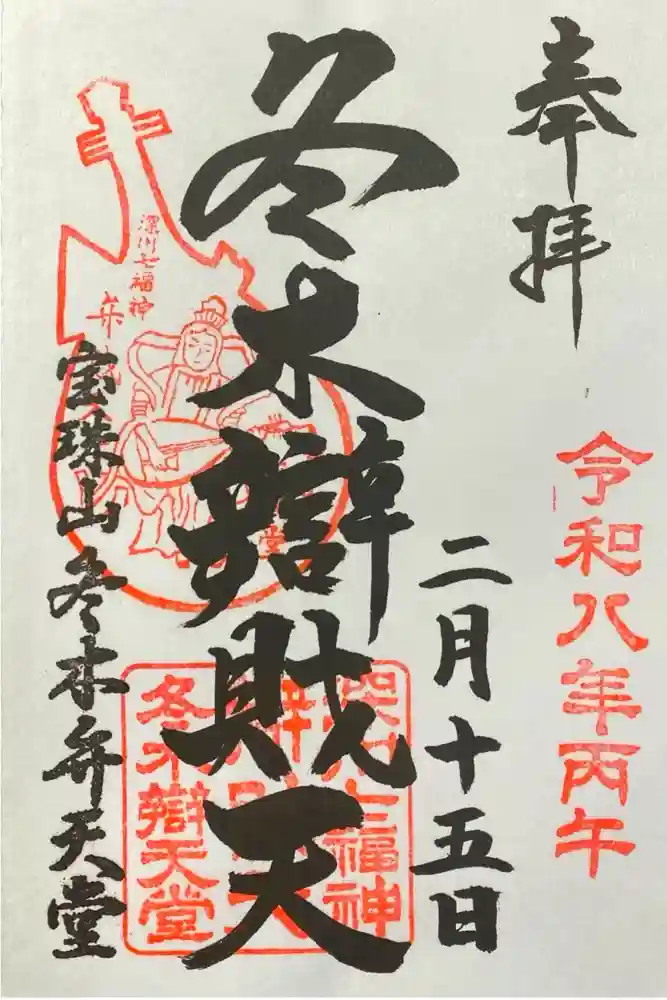 奉拝
令和八年丙午
二月十五日
冬木辯財天
深川七福神
宝珠山冬木弁天堂
深川七福神
辯財天
冬木辯天堂